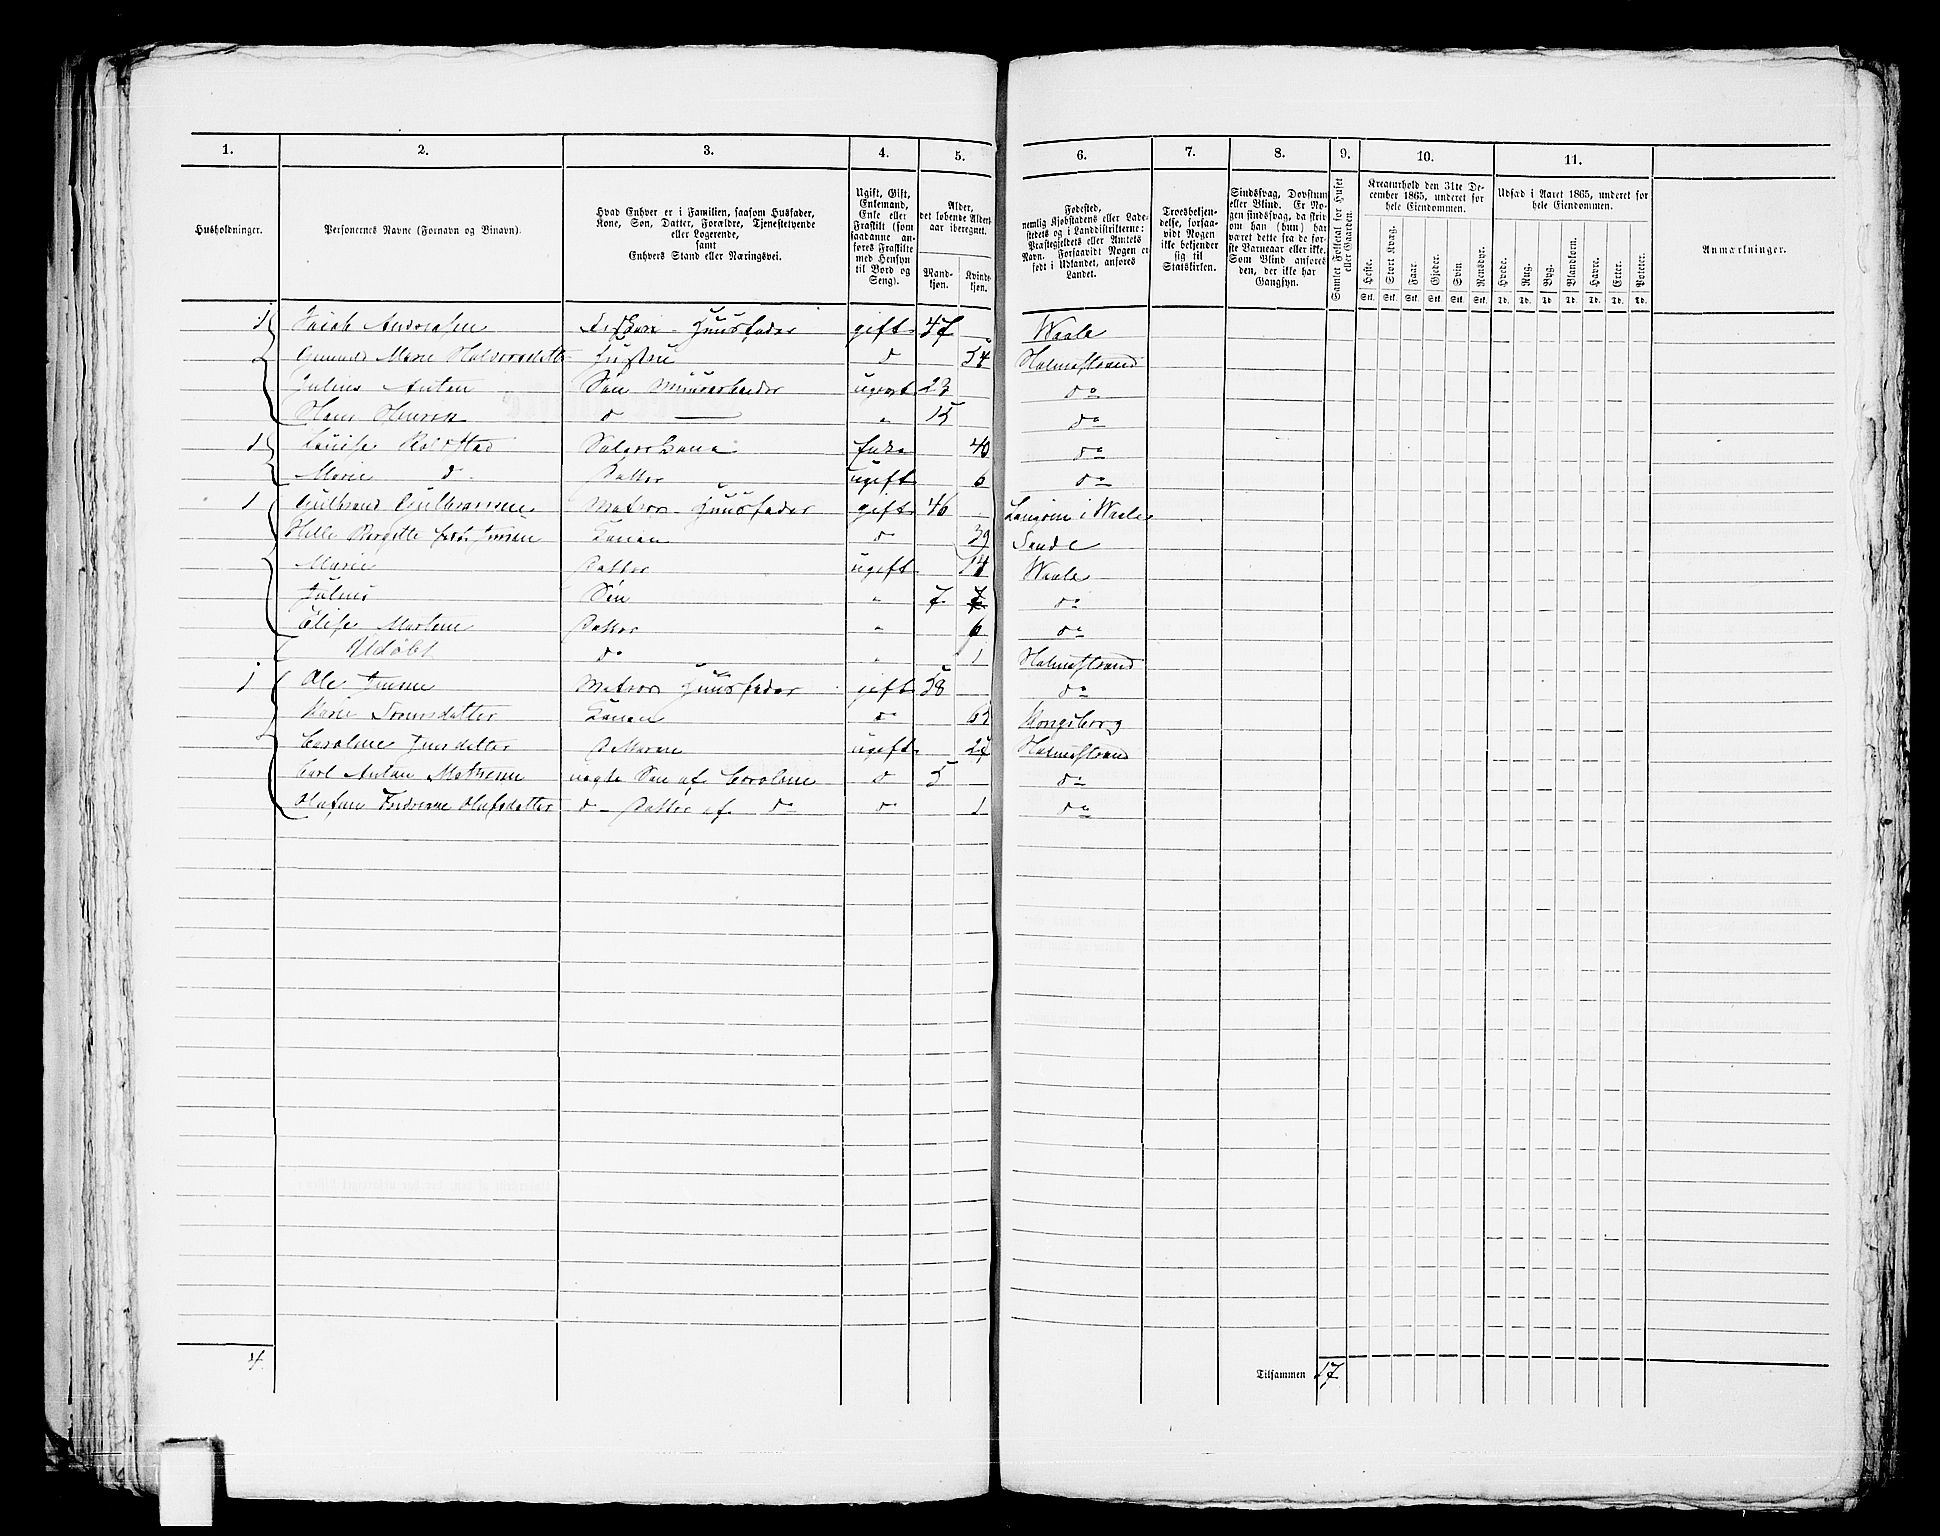 1. 2. 3. 4. 5. 6. 7. 8. 9. 10. 11.
Husholdninger.
Personernes Navne (Fornavn og Binavn).
Hvad Enhver er i Familien, saasom Husfader,
Kone, Søn, Datter, Forældre, Tjenestetyende
eller Logerende,
samt
Enhvers Stand eller Næringsvei.
Ugift, Gift,
Enkemand,
Enke eller
Fraskilt (som
saadanne an-
føres Fraskilte
med Hensyn
til Bord og
Seng).
Alder,
det løbende Alders-
aar iberegnet.
Mand-
kjøn.
Kvinde-
kjøn.
Fødested,
nemlig Kjøbstadens eller Lade-
stedets og i Landdistrikterne:
Præstegjeldets eller Amtets
Navn. Forsaavidt Nogen er
født i Udlandet, anføres
Landet.
Troesbekjen-
delse, forsaa-
vidt Nogen
ikke bekjender
sig til
Statskirken.
Sindssvag, Døvstum
eller Blind. Er No-
gen sindssvag, da skriv
om han (hun) har
været dette fra de før-
ste Barneaar eller ikke.
Som Blind anføres
den, der ikke har
Gangsyn.
Samlet Folketal for Huset
eller Gaarden.
Kreaturhold den 31te De-
cember 1865, underet for
hele Eiendommen.
Heste. Stort Kvæg. Faar. Gjeder. Svin. Rensdyr.
Stk. Stk. Stk. Stk. Stk. Stk.
Udsæd i Aaret 1865, underet for
hele Eiendommen.
Hvede. Rug. Byg. Blandkorn. Havre. Erter. Poteter.
Td. Td. Td. Td. Td. Td. Td.
Anmærkninger.
1 Andreasen Huusfader gift 47 Waale
Marie Halvorsdatter Hustru d 54 Holmestrand
Julius Anton Søn ugift 23 do
Hans d " 15 do
1 Enke 40 do
Marie d Datter ugift 6 do
1 Matros Huusfader gift 46 i Waale
Helle født Jensen Konen d 39 Sande
Marie Datter ugift Waale
Julius Søn " 7 do
Elise Datter " 6 do
Udøbt do " 1 Holmestrand
1 Ole Matros Huusfader gift 58 do
Konen d Kongsberg
Caroline Jensdatter ugift Holmestrand
Carl Anton uægte Søn af Caroline d 5 do
Olufsdatter d Datter af do d 1 do
4
Tilsammen 17